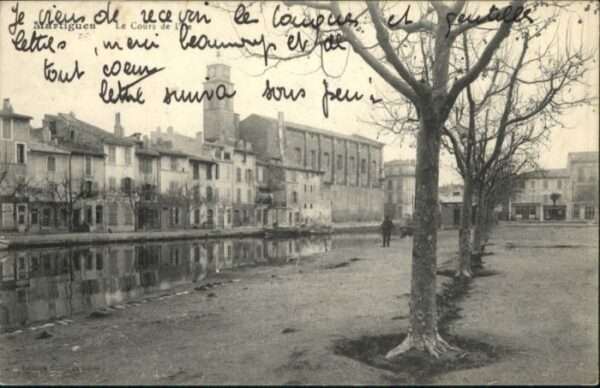 Martigues Le Cours de l'Ile
Je viens de recevoir ta longues et gentille
lettres, merci beaucoup et de
tout coeur
lettre suivra sous peu